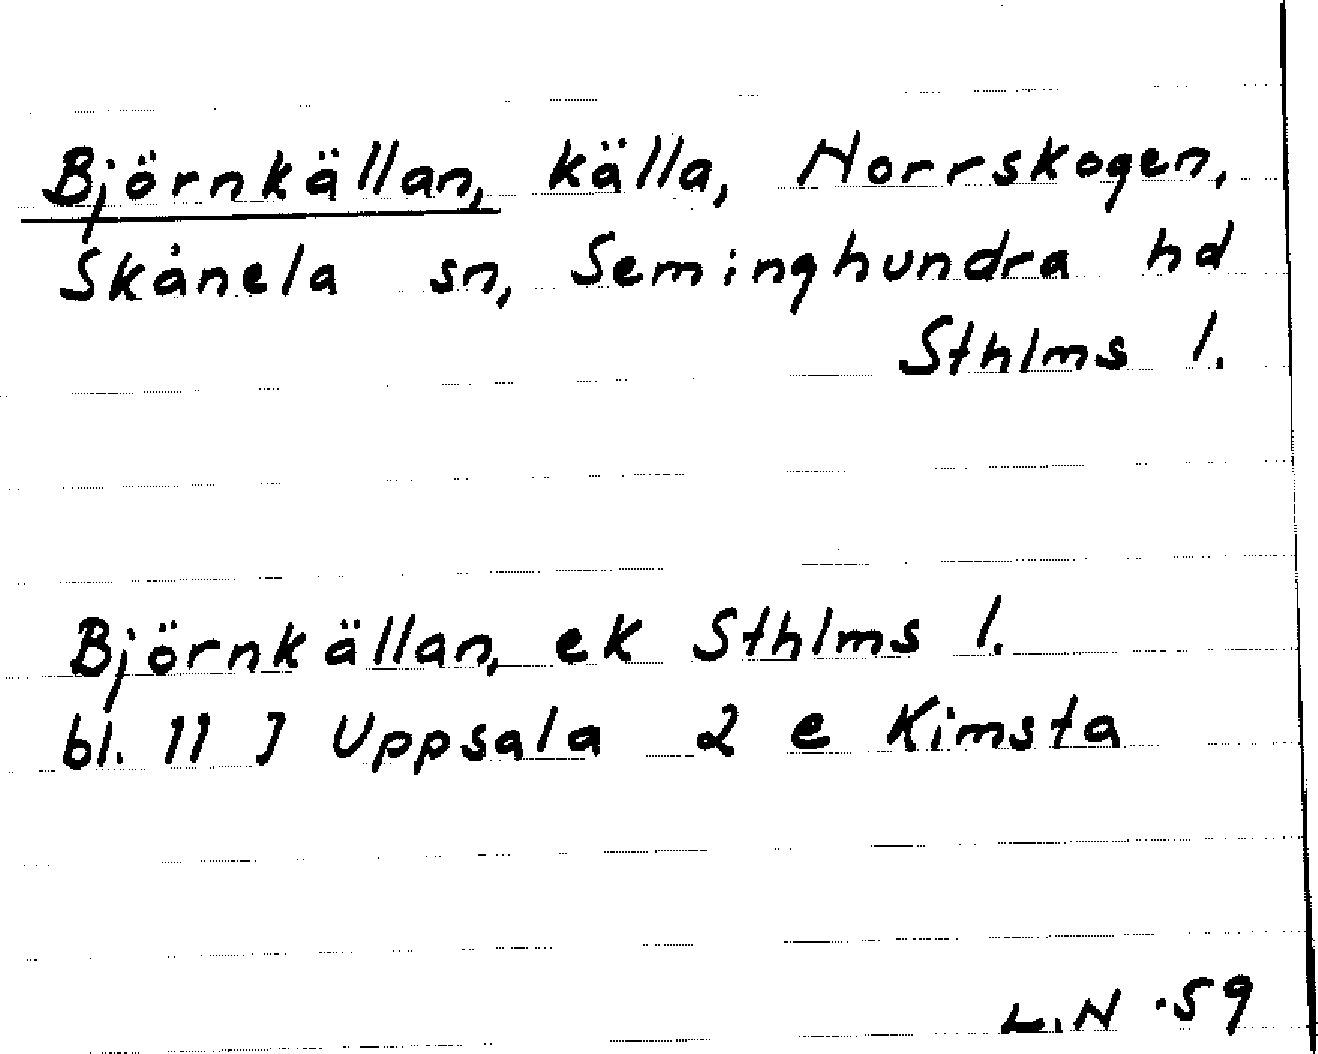 Björnkällan, källa, Norrskogen,
Skånela sn, Seminghundra hd
Sthlms l.
Björnkällan, ek Sthlms l.
bl. 11 J Uppsala 2 e Kimsta
L.N -59